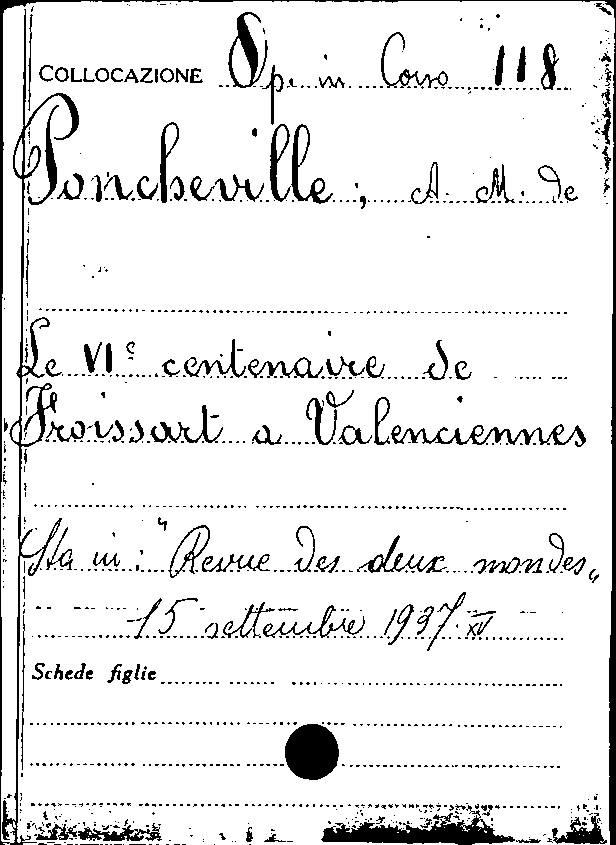 COLLOCAZIONE Op. in Corso 118
Poncheville, A. M. de
Le VIᵉ centenaire de
Froissart a Valenciennes
Sta in: "Revue des deux mondes"
15 settembre 1937. XV
Schede figlie